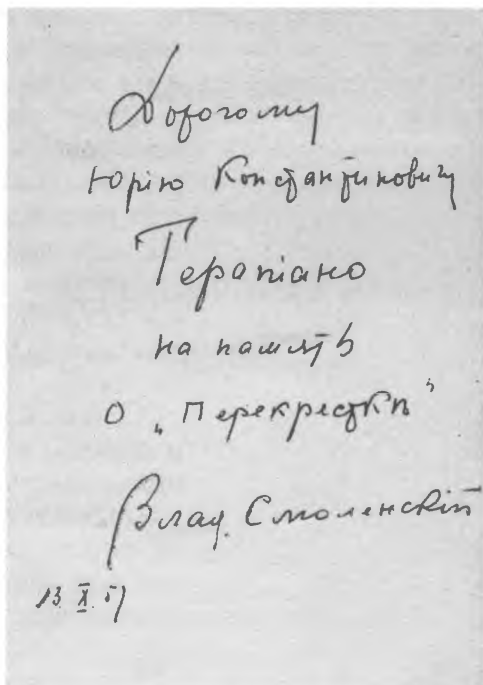 Дорогому
Юрію Константиновичу
Терапіано
на память
о „Перекресткѣ"
Влад. Смоленскій
13 X 57